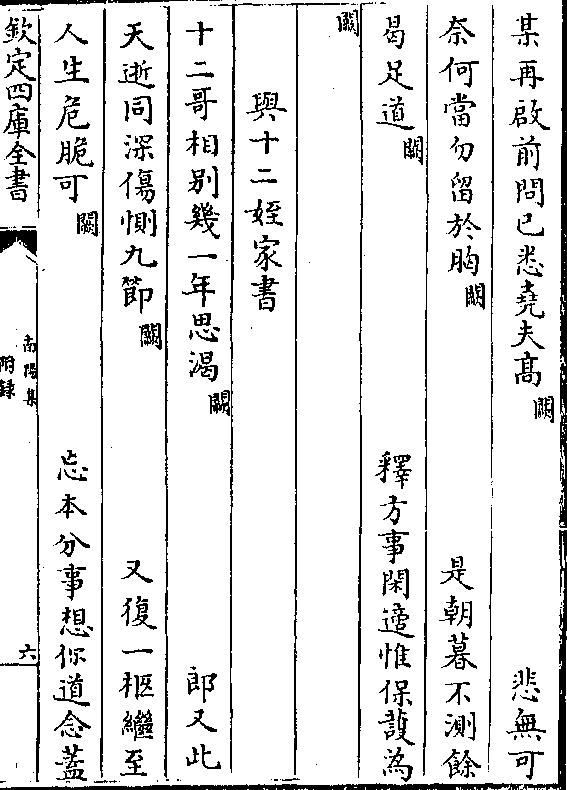 某再啟前問已悉堯夫髙闕 悲無可
奈何當勿留於胸闕 是朝暮不測餘
曷足道闕 釋方事閑適惟保護為
闕
與十二姪家書
十二哥相別幾一年思渴闕 郎又此
夭逝同深傷惻九節闕 又復一柩繼至
人生危脆可闕 忘本分事想你道念蓋
欽定四庫全書
南陽集
附錄
六